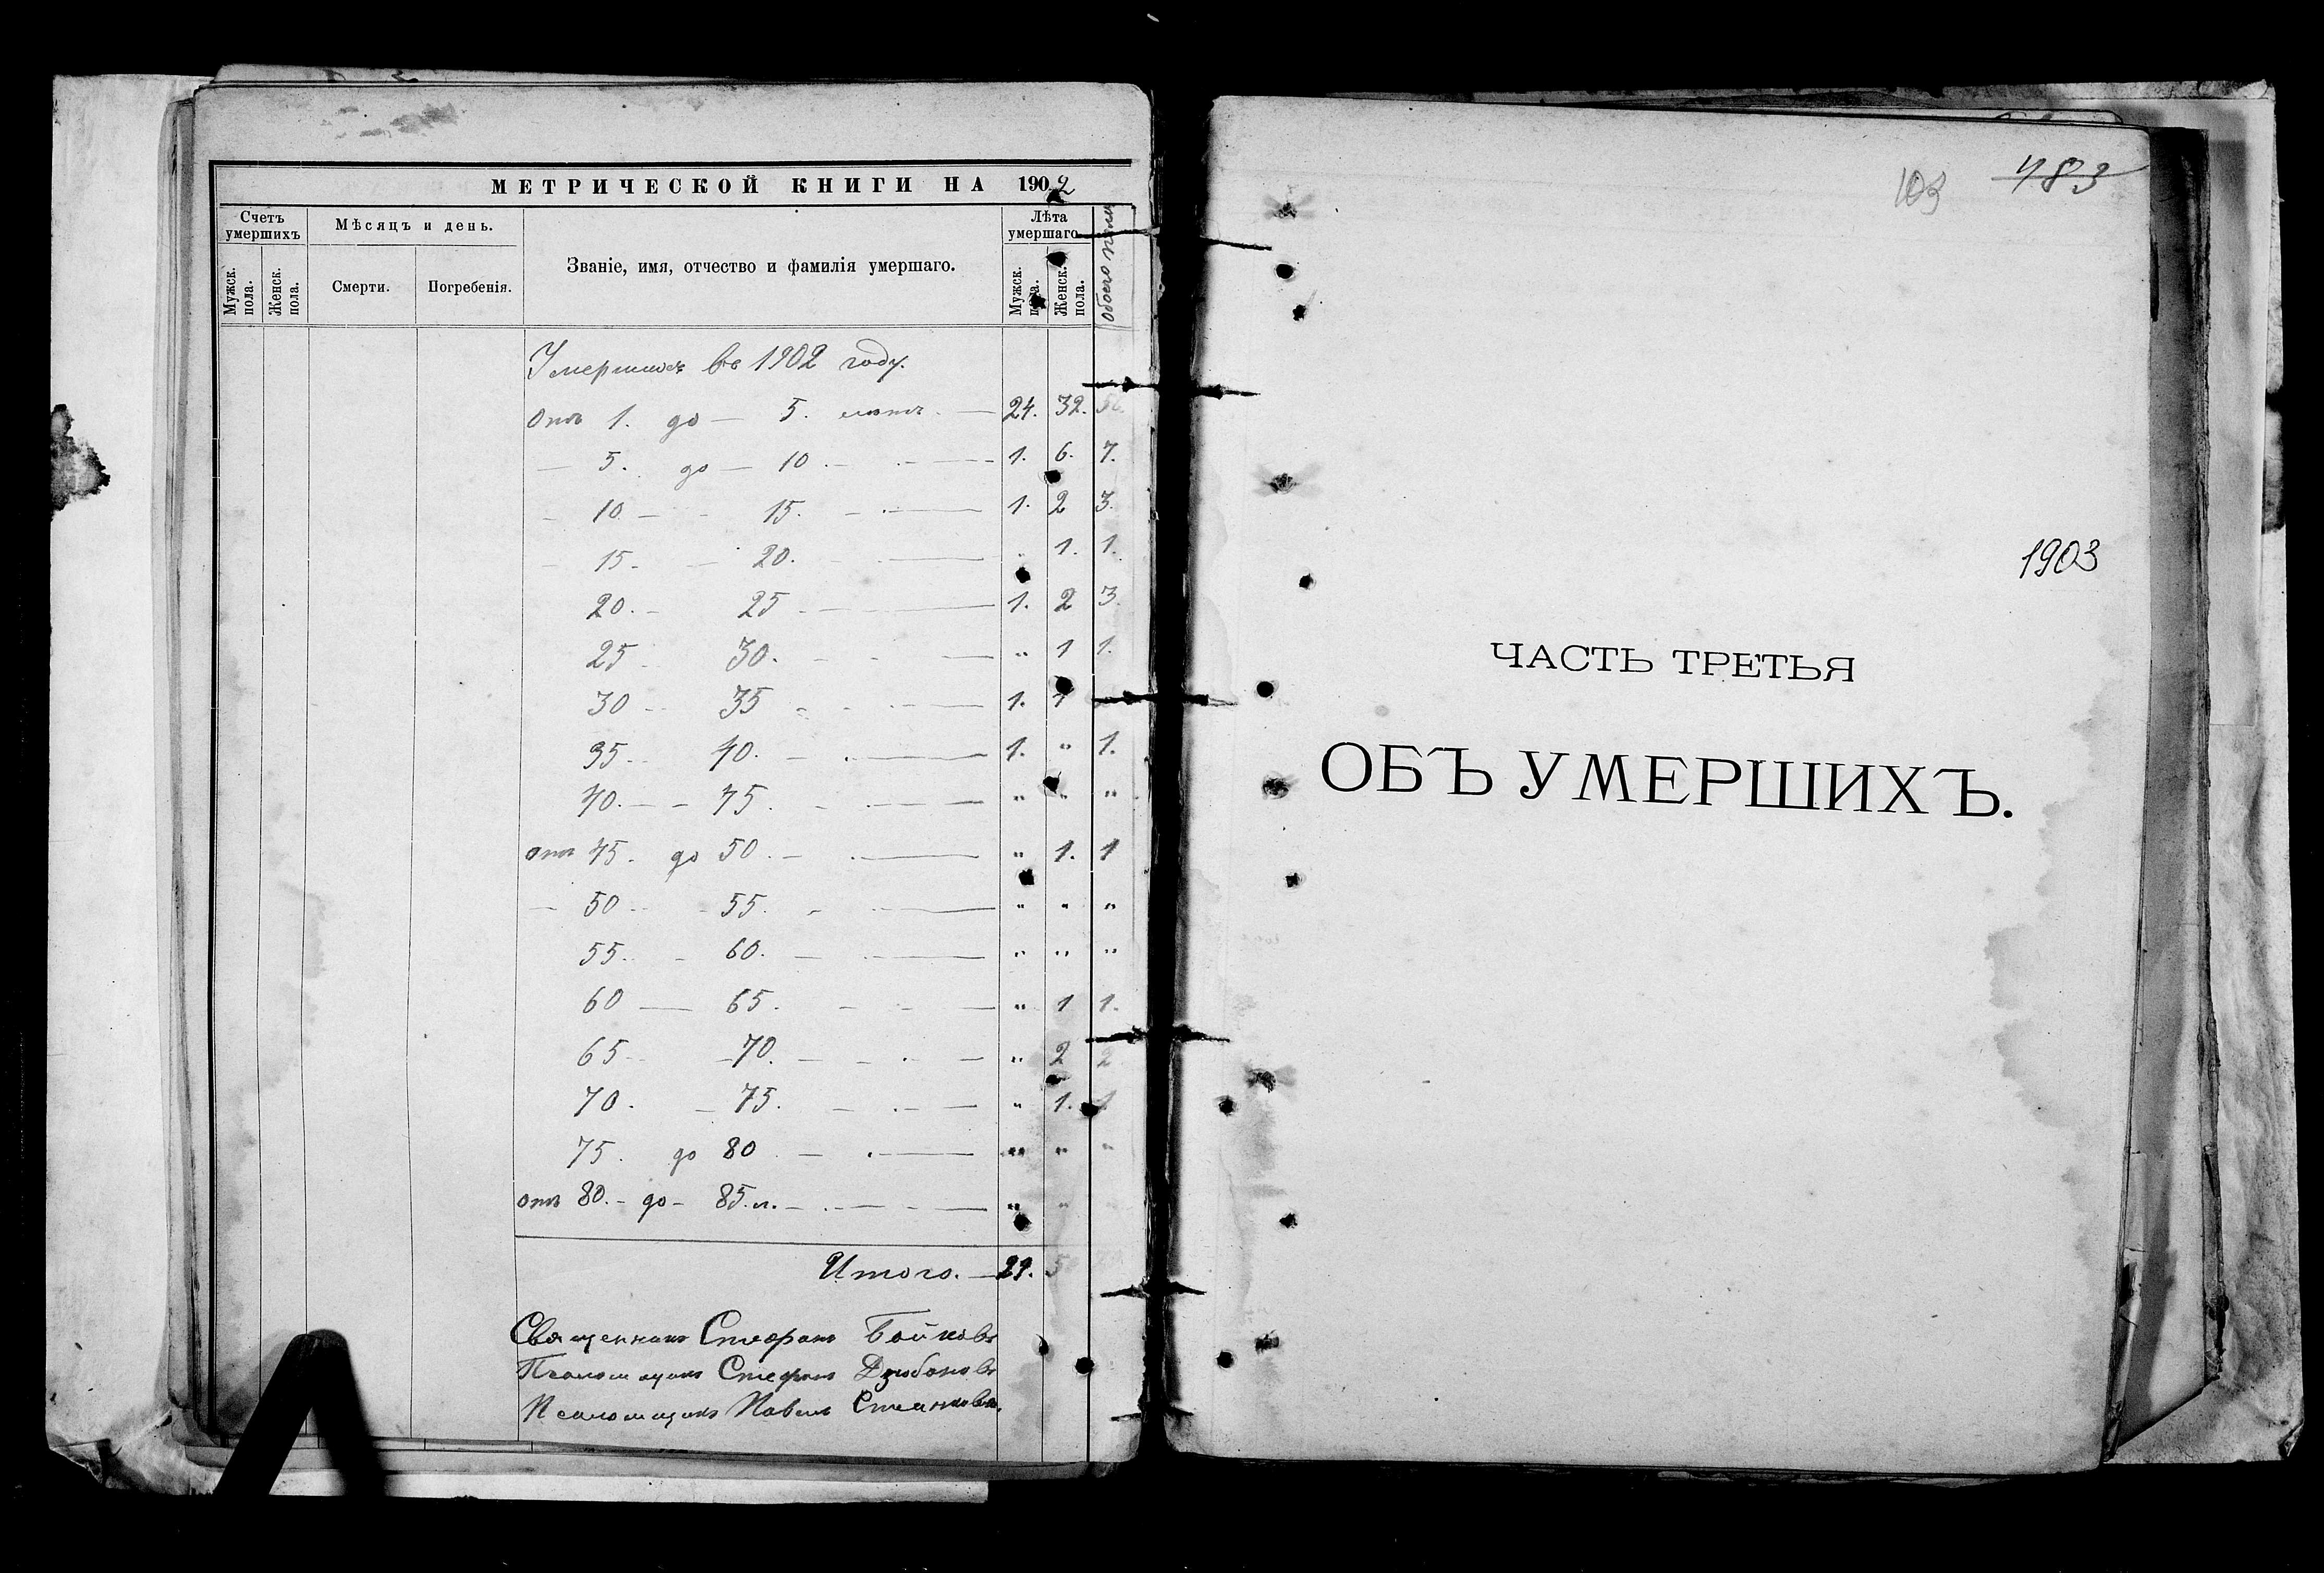 МЕТРИЧЕСКОЙ КНИГИ НА 1902
Счетъ умершихъ
Мѣсяцъ и день.
Званіе, имя, отчество и фамилія умершаго.
Лѣта умершаго
обоего пола
Мужск. пола.
Женск. пола.
Смерти.
Погребенія.
Мужск. пола.
Женск. пола.
Умершихъ въ 1902 году.
отъ 1. до — 5. лѣтъ. — 24. 32. 56.
— 5. до — 10. — 1. 6. 7.
— 10 — 15. — 1. 2 3.
— 15. — 20. — " 1. 1.
20. — 25 — 1. 2 3.
25 30. — " 1 1.
30 — 35 — 1. 1
35. 40. — 1. " 1.
40. — 45. — " " "
отъ 45. до 50. — " 1. 1
— 50 — 55. — " " "
55. — 60. — " " "
60 — 65. — " 1 1.
65 — 70. — " 2 2
70. — 75. — " 1. 1.
75. до 80. — " " "
отъ 80. — до — 85. л. — " "
Итого. — 29. 5
Священникъ Стефанъ Бойковъ
Псаломщикъ Стефанъ Дзюбановъ
Псаломщикъ Павелъ Станковъ.
103 483
1903
ЧАСТЬ ТРЕТЬЯ
ОБЪ УМЕРШИХЪ.